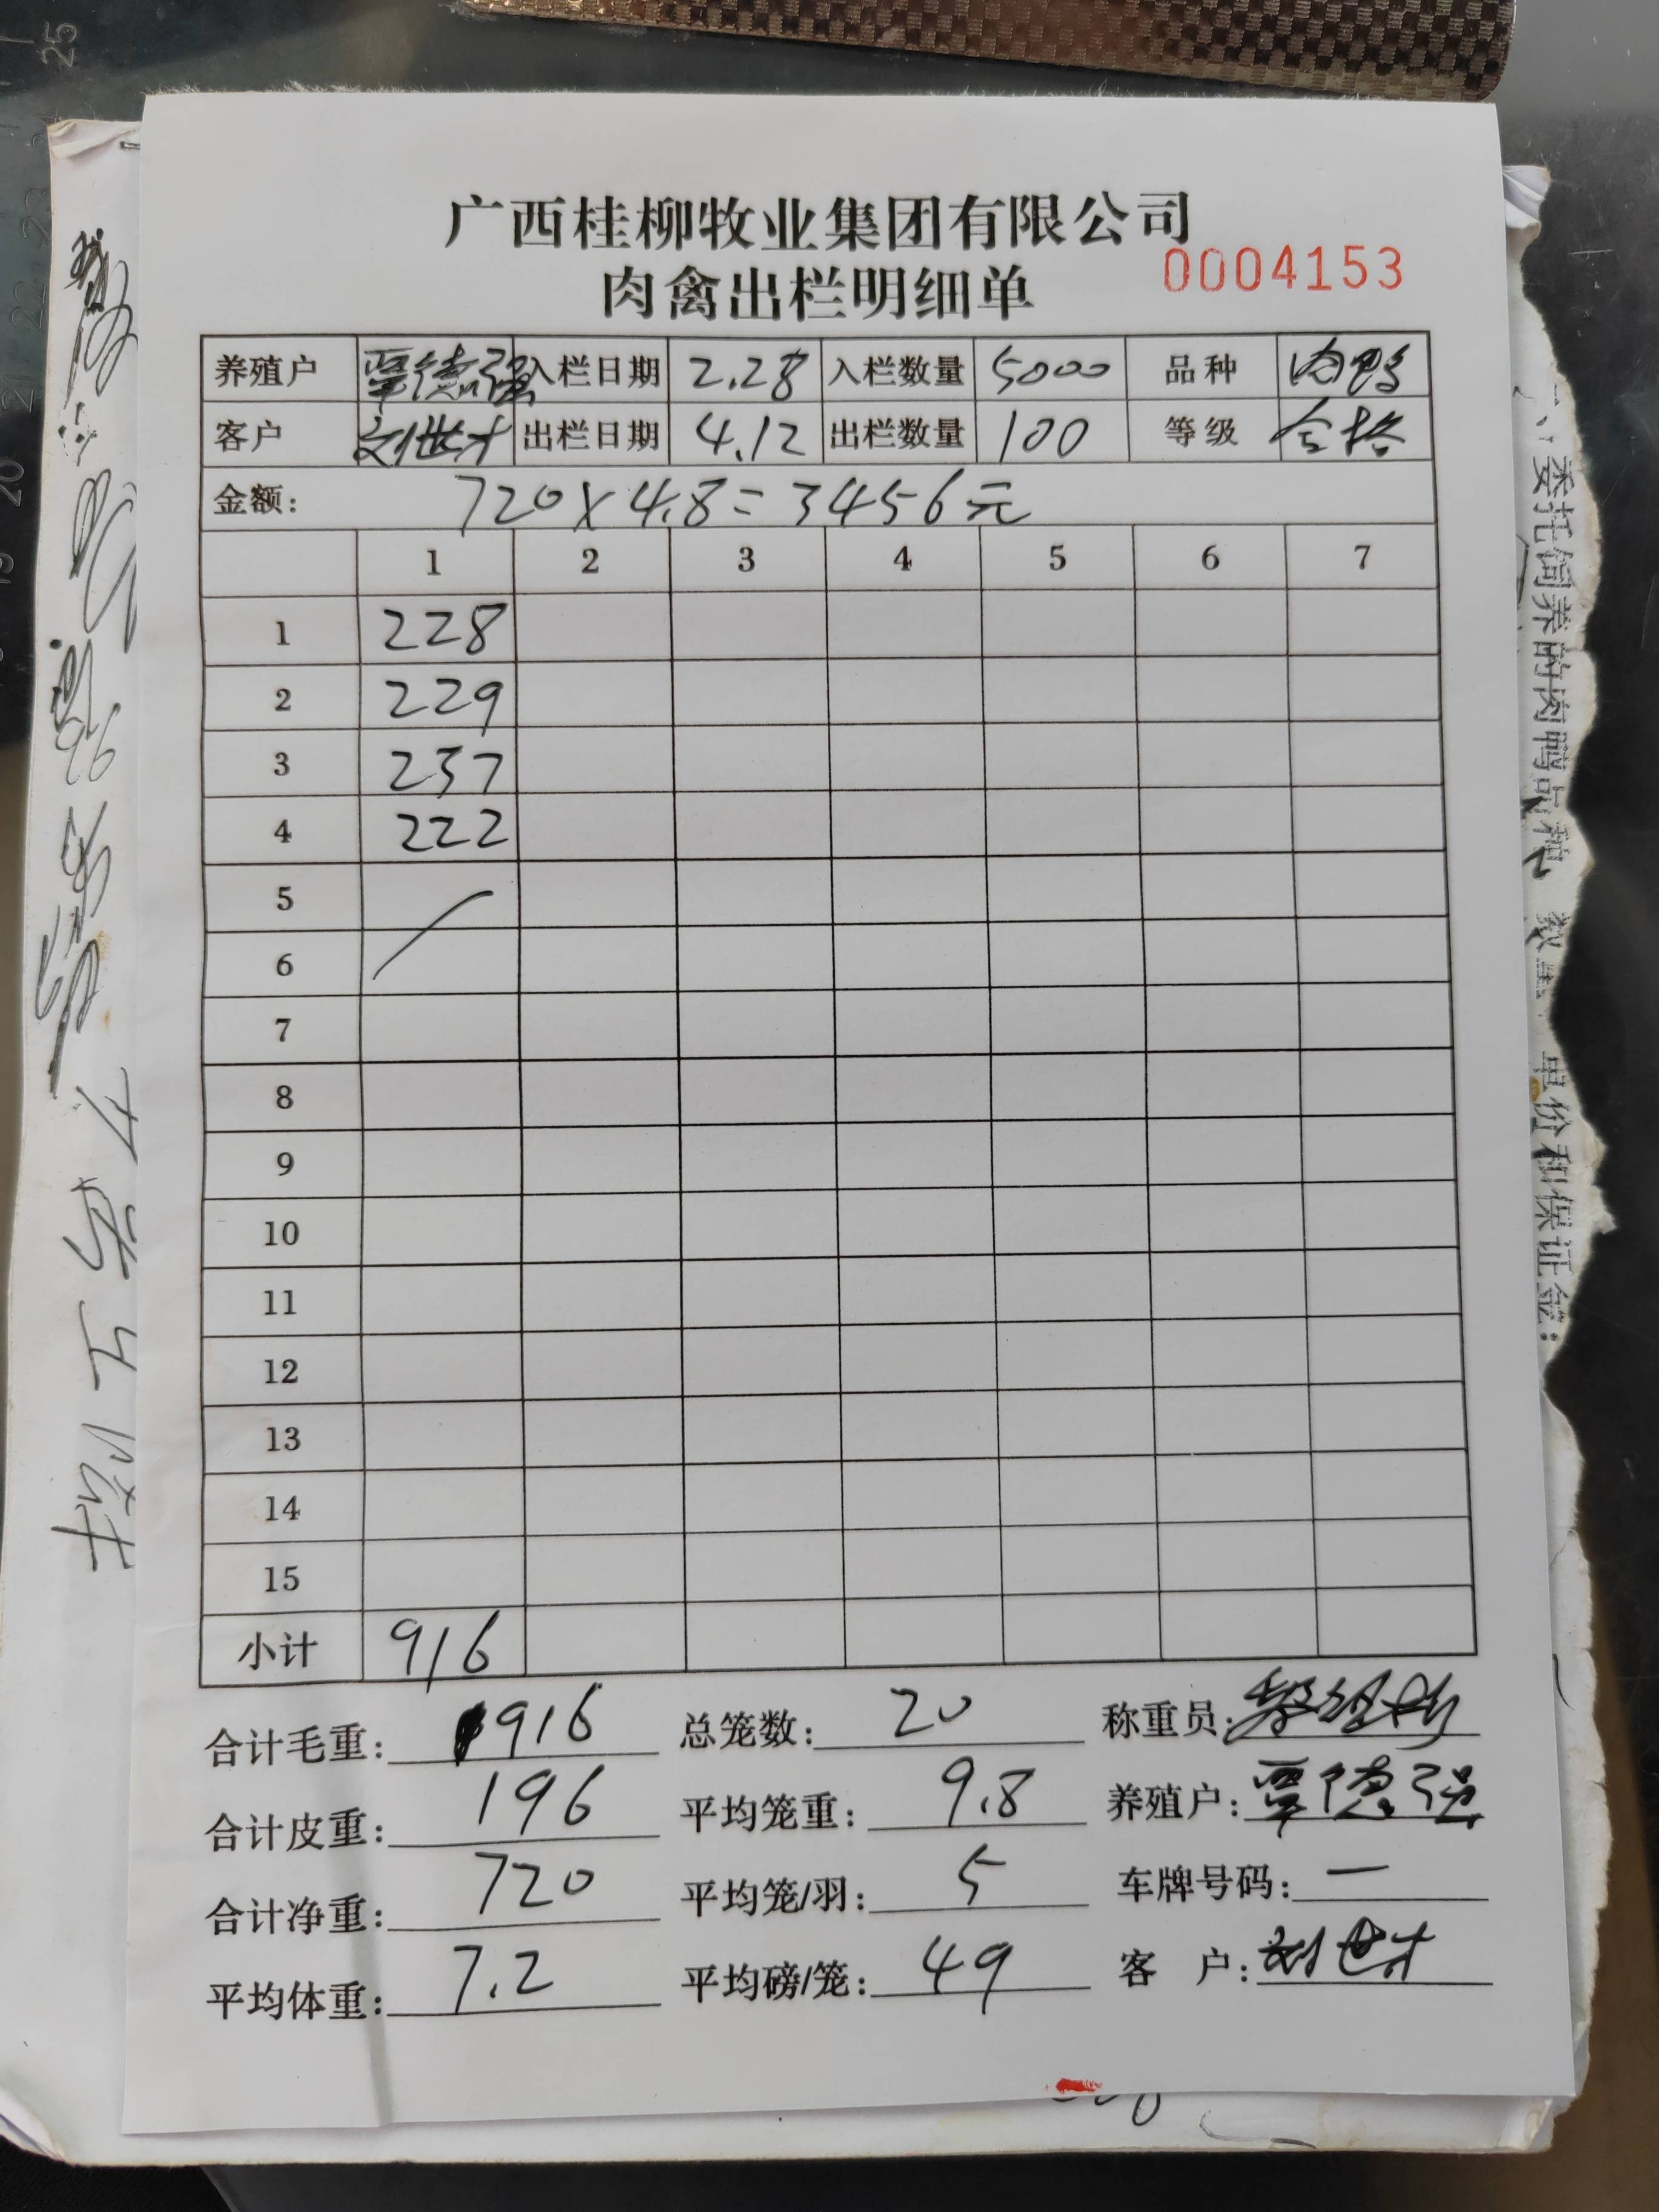 广西桂柳牧业集团有限公司
肉禽出栏明细单
0004153
养殖户 覃德强 入栏日期 2.28 入栏数量 5000 品种 肉鸭
客户 刘世才 出栏日期 4.12 出栏数量 100 等级 合格
金额: 720×4.8=3456元
1 2 3 4 5 6 7
1 228
2 229
3 237
4 222
5
6
7
8
9
10
11
12
13
14
15
小计 916
合计毛重: 916 总笼数: 20 称重员:
合计皮重: 196 平均笼重: 9.8 养殖户: 覃德强
合计净重: 720 平均笼/羽: 5 车牌号码: 一
平均体重: 7.2 平均磅/笼: 49 客 户: 刘世才
委托饲养的肉鸭品种、数量、单价和保证金: